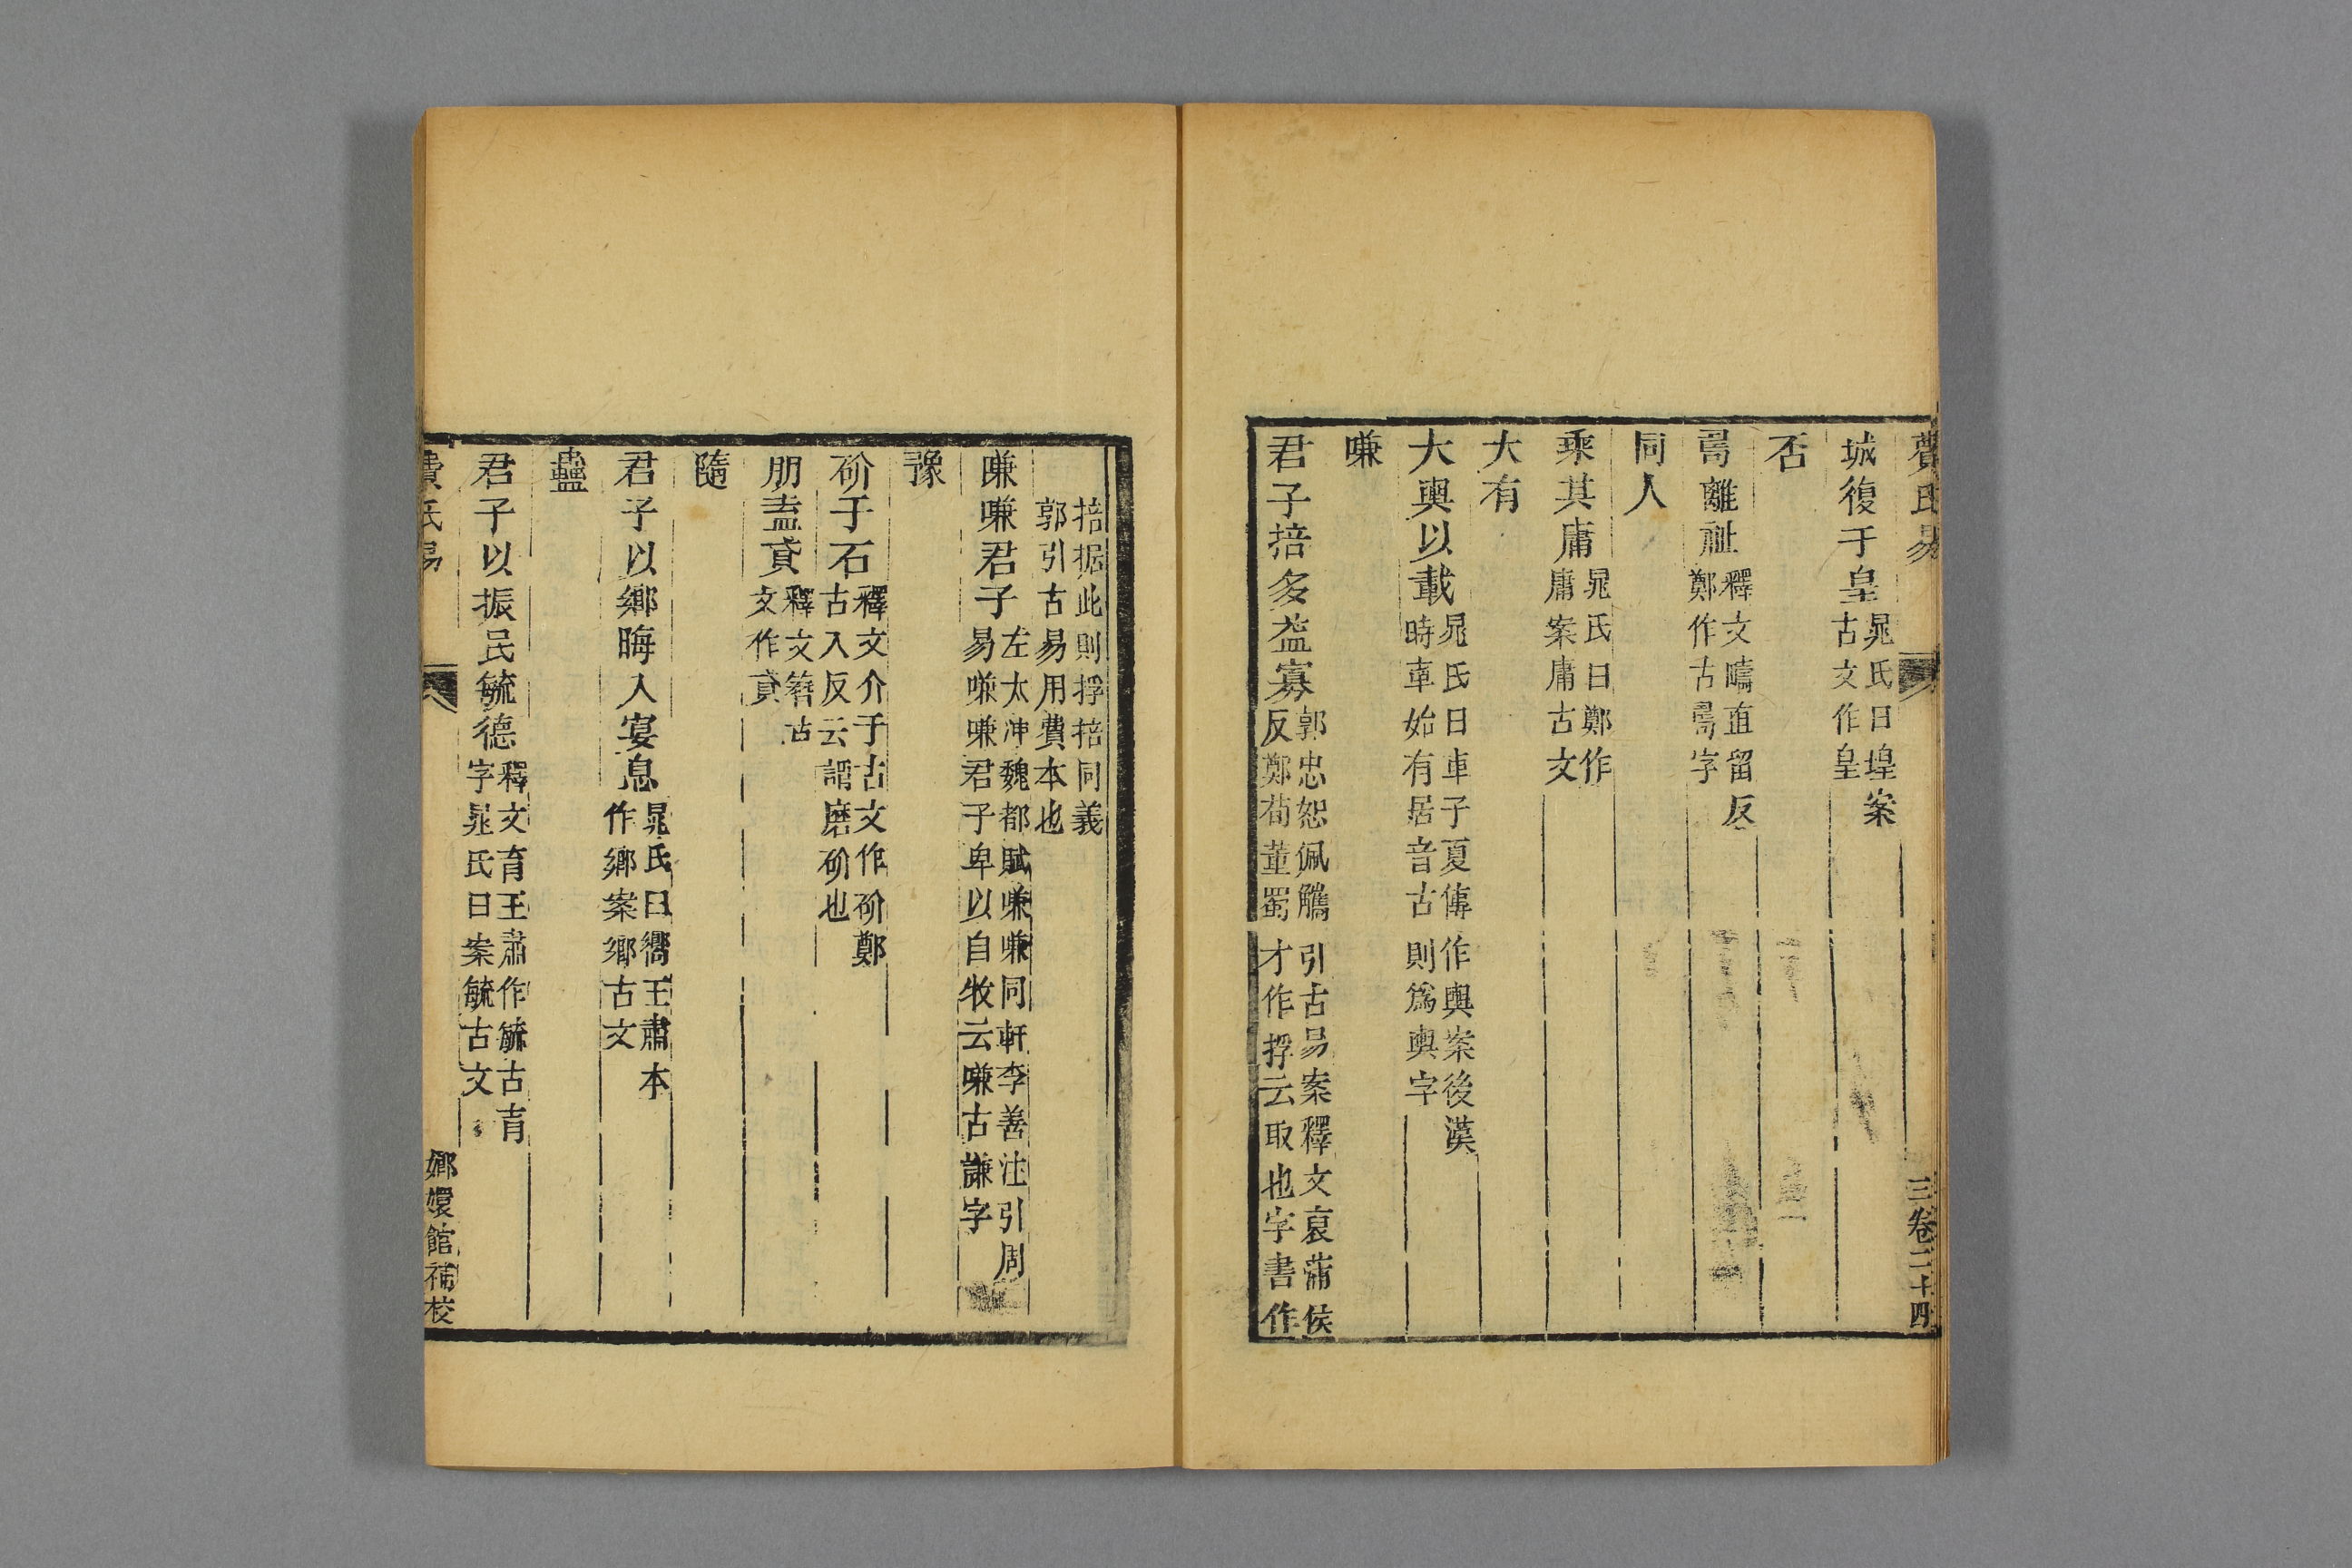 費氏易 三 卷二十四
城復于皇 晁氏曰堭案
古文作皇
否
離祉 釋文疇直留反
鄭作古字
同人
乘其庸 晁氏曰鄭作
庸案庸古文
大有
大輿以載 晁氏曰車子夏傳作輿案後漢
時車始有居音古則爲輿字
嗛
君子掊多益寡 郭忠恕佩觿引古易案釋文裒蒲侯
反鄭荀董蜀才作捊云取也字書作
掊据此則捊掊同義
郭引古易用費本也
嗛嗛君子 左太沖魏都賦嗛嗛同軒李善注引周
易嗛嗛君子卑以自牧云嗛古謙字
豫
砎于石 釋文介于古文作砎鄭
古八反云謂磨砎也
朋盍貣 釋文簪古
文作貣
隨
君子以鄉晦入宴息 晁氏曰嚮王肅本
作鄉案鄉古文
蠱
君子以振民毓德 釋文育王肅作毓古育
字晁氏曰案毓古文
費氏易 嫏嬛館補校